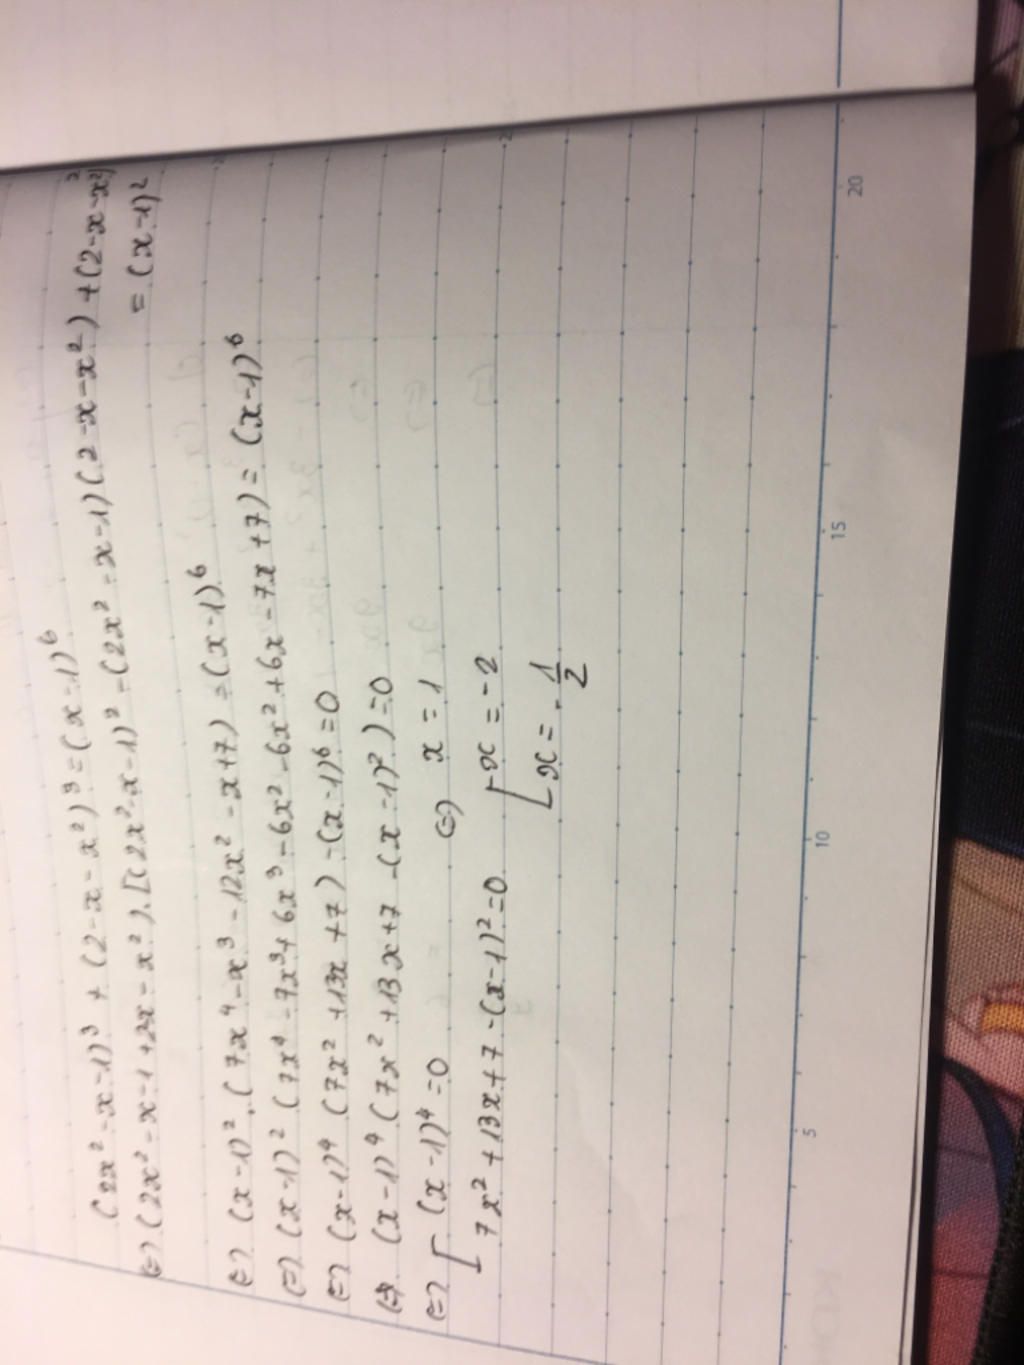 (2x² - x - 1)³ + (2 - x - x²)³ = (x - 1)⁶
(=) (2x² - x - 1 + 2 - x - x²).[(2x² - x - 1)² - (2x² - x - 1)(2 - x - x²) + (2 - x - x²)²
= (x - 1)²
(=) (x - 1)².(7x⁴ - x³ - 12x² - x + 7) = (x - 1)⁶
(=) (x - 1)² (7x⁴ - 7x³ + 6x³ - 6x² - 6x² + 6x - 7x + 7) = (x - 1)⁶
(=) (x - 1)⁴ (7x² + 13x + 7) - (x - 1)⁶ = 0
(=) (x - 1)⁴ (7x² + 13x + 7 - (x - 1)²) = 0
(=) [ (x - 1)⁴ = 0 (=) x = 1
7x² + 13x + 7 - (x - 1)² = 0 [ x = -2
x = - 1/2
5 10 15 20